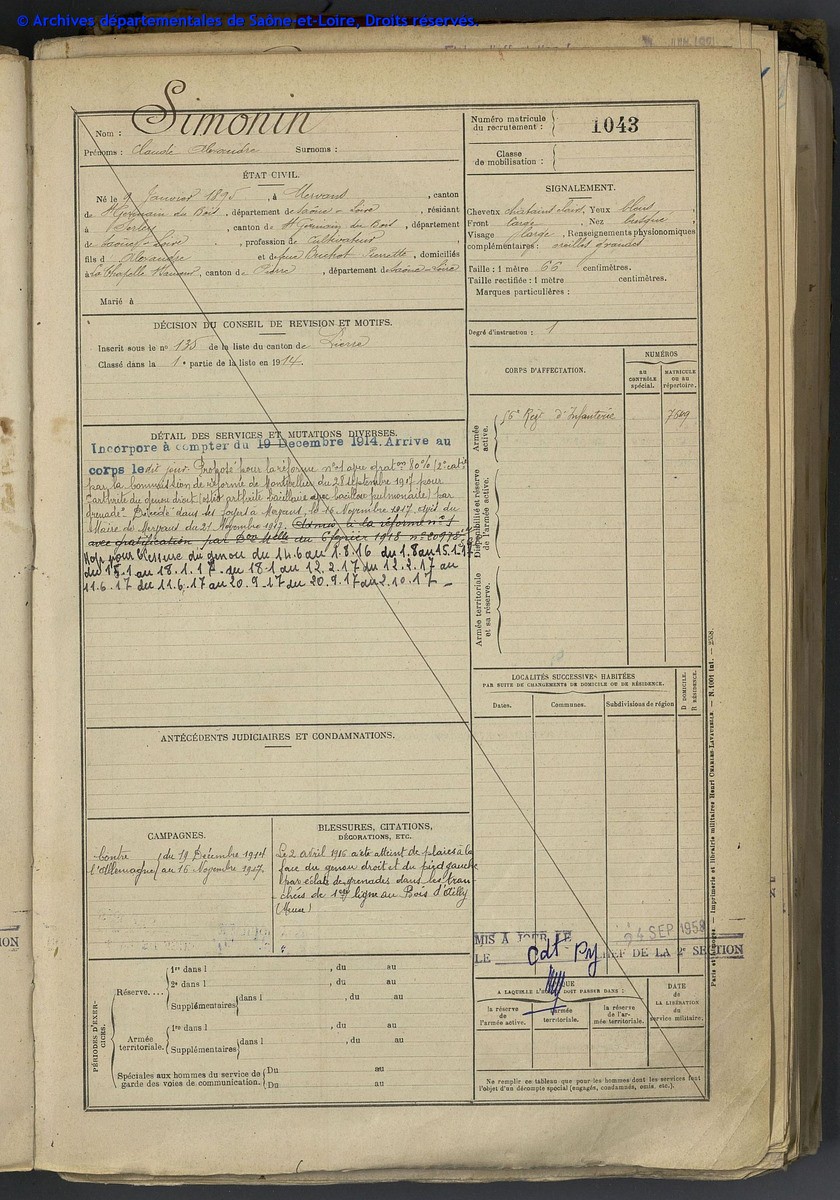 © Archives départementales de Saône-et-Loire, Droits réservés.
Simonin
Nom :
Prénoms : Claude Alexandre Surnoms :
Numéro matricule du recrutement : 1043
Classe de mobilisation :
ÉTAT CIVIL.
Né le 9 Janvier 1895, à Mervans, canton
de St Germain du Bois, département de Saône-&-Loire, résidant
à , canton de St Germain du Bois, département
de Saône-&-Loire, profession de Cultivateur,
fils d'Alexandre et de feue Pierrette, domiciliés
à La Chapelle , canton de Pierre, département de Saône-&-Loire
Marié à
SIGNALEMENT.
Cheveux châtains , Yeux bleus,
Front large, Nez busqué,
Visage large, Renseignements physionomiques
complémentaires : oreilles grandes
Taille : 1 mètre 66 centimètres.
Taille rectifiée : 1 mètre centimètres.
Marques particulières :
Degré d'instruction : 1
DÉCISION DU CONSEIL DE REVISION ET MOTIFS.
Inscrit sous le no 135 de la liste du canton de Pierre
Classé dans la 1e partie de la liste en 1914.
CORPS D'AFFECTATION.
NUMÉROS
AU CONTRÔLE spécial.
MATRICULE OU AU répertoire.
Armée active.
56e Régt d'Infanterie 7609
Disponibilité et réserve de l'armée active.
Armée territoriale et sa réserve.
DÉTAIL DES SERVICES ET MUTATIONS DIVERSES.
Incorporé à compter du 19 Décembre 1914. Arrivé au
corps le dit jour. Proposé pour la réforme no 1 avec graton 80% (2e catie
par la Commission de réforme de Montpellier du 28 septembre 1917 pour
"arthrite du genou droit (ostéo arthrite bacillaire avec bacillose pulmonaire) par
grenade". Décédé dans ses foyers à Mervans, le 16 Novembre 1917, avis du
Maire de Mervans du 21 Novembre 1917. Admis à la réforme no 1
avec gratification par Don Melle du 6 février 1918 no 20978
Hop. pour blessure du genou du 14.6 au 1.8.16 du 1.8 au 15.1.17
du 15.1 au 18.1.17 du 18.1 au 12.2.17 du 12.2.17 au
11.6.17 du 11.6.17 au 20.9.17 du 20.9.17 au 2.10.17
LOCALITÉS SUCCESSIVES HABITÉES
PAR SUITE DE CHANGEMENTS DE DOMICILE OU DE RÉSIDENCE.
Dates. Communes. Subdivisions de région
D DOMICILE. R RÉSIDENCE.
ANTÉCÉDENTS JUDICIAIRES ET CONDAMNATIONS.
CAMPAGNES.
Contre l'Allemagne
du 19 Décembre 1914
au 16 Novembre 1917.
BLESSURES, CITATIONS,
DÉCORATIONS, ETC.
Le 2 avril 1916 a été atteint de plaies à la
face du genou droit et du pied gauche
par éclats de grenades dans les tran-
chées de 1ère ligne au Bois d'Ailly
(Meuse)
MIS À JOUR LE 24 SEP 1958
LE Cdt Py CHEF DE LA 2e SECTION
PÉRIODES D'EXERCICES.
Réserve....
1re dans l , du au
2e dans l , du au
Supplémentaires dans l , du au
Armée territoriale.
1re dans l , du au
Supplémentaires dans l , du au
Spéciales aux hommes du service de garde des voies de communication.
Du au
Du au
ÉPOQUE
A LAQUELLE L'HOMME DOIT PASSER DANS :
la réserve de l'armée active.
l'armée territoriale.
la réserve de l'armée territoriale.
DATE de LA LIBÉRATION du service militaire.
Ne remplir ce tableau que pour les hommes dont les services font
l'objet d'un décompte spécial (engagés, condamnés, omis, etc.).
Paris et Limoges. — Imprimerie et librairie militaires Henri CHARLES-LAVAUZELLE. — N. 1001 Int.